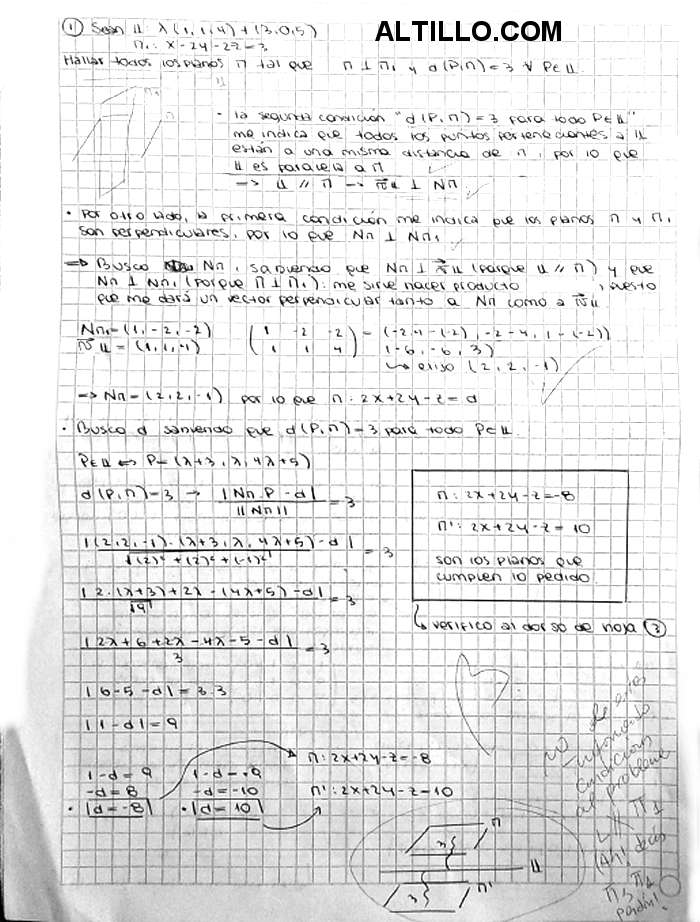 ALTILLO.COM
① Sean 𝕃: λ(1,1,4) + (3,0,5)
Π₁: x-2y-2z=3
Hallar todos los planos Π tal que Π ⊥ Π₁ y d(P,Π)=3 ∀ P∈𝕃.
Π₁
Π
• la segunda condición "d(P,Π)=3 para todo P∈𝕃"
me indica que todos los puntos pertenecientes a 𝕃
están a una misma distancia de Π, por lo que
𝕃 es paralela a Π
→ 𝕃 // Π → v⃗𝕃 ⊥ NΠ
• Por otro lado, la primera condición me indica que los planos Π y Π₁
son perpendiculares, por lo que NΠ ⊥ NΠ₁
⇒ Busco NΠ, sabiendo que NΠ ⊥ v⃗𝕃 (porque 𝕃 // Π) y que
NΠ ⊥ NΠ₁ (porque Π ⊥ Π₁): me sirve hacer producto , puesto
que me dará un vector perpendicular tanto a NΠ como a v⃗𝕃
NΠ₁ = (1,-2,-2) (1 -2 -2) = (-2.4-(-2), -2-4, 1-(-2))
v⃗𝕃 = (1,1,4) (1 1 4) (-6,-6,3)
↳ elijo (2,2,-1)
⇒ NΠ = (2,2,-1) por lo que Π: 2x+2y-z=d
• Busco d sabiendo que d(P,Π)=3 para todo P∈𝕃.
P∈𝕃 ⇔ P=(λ+3, λ, 4λ+5)
d(P,Π)=3 → |NΠ.P-d| / ||NΠ|| = 3
|(2,2,-1).(λ+3, λ, 4λ+5)-d| / √((2)²+(2)²+(-1)²) = 3
|2.(λ+3)+2λ-(4λ+5)-d| / √9 = 3
|2λ+6+2λ-4λ-5-d| / 3 = 3
|6-5-d| = 3.3
|1-d| = 9
1-d=9 1-d=-9
-d=8 -d=-10
• |d=-8| • |d=10|
Π: 2x+2y-z=-8
Π': 2x+2y-z=10
Π: 2x+2y-z=-8
Π': 2x+2y-z=10
son los planos que
cumplen lo pedido.
↳ verifico al dorso de hoja ③
3 Π
𝕃
3 Π'
No
le estás
condición
al problema
𝕃 // Π₁
decís
Π ⊥ Π₁
perdón!